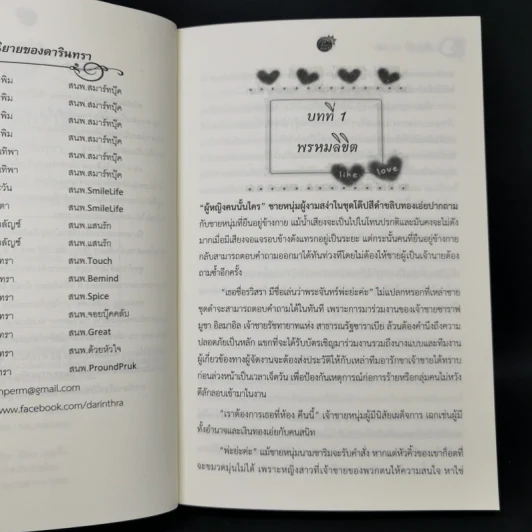 ิยายของดารินทรา
พิม สนพ.สมาร์ทบุ๊ค
พิม สนพ.สมาร์ทบุ๊ค
พิม สนพ.สมาร์ทบุ๊ค
พิม สนพ.สมาร์ทบุ๊ค
ทิพา สนพ.สมาร์ทบุ๊ค
ทิพา สนพ.สมาร์ทบุ๊ค
วัน สนพ.SmileLife
ตา สนพ.SmileLife
ลัญช์ สนพ.แสนรัก
ลัญช์ สนพ.แสนรัก
ทรา สนพ.Touch
ทรา สนพ.Bemind
ทรา สนพ.Spice
ทรา สนพ.จอยบุ๊คคลับ
ทรา สนพ.Great
ทรา สนพ.ด้วยหัวใจ
ทรา สนพ.ProundPruk
nperm@gmail.com
www.facebook.com/darinthra
บทที่ 1
พรหมลิขิต
like love
"ผู้หญิงคนนั้นใคร" ชายหนุ่มผู้งามสง่าในชุดโต๊ปสีดำขลิบทองเอ่ยปากถาม
กับชายหนุ่มที่ยืนอยู่ข้างกาย แม้น้ำเสียงจะเป็นไปในโทนปรกติและมั่นคงจะไม่ดัง
มากเมื่อมีเสียงจอแจรอบข้างดังแทรกอยู่เป็นระยะ แต่กระนั้นคนที่ยืนอยู่ข้างกาย
กลับสามารถตอบคำถามออกมาได้ทันท่วงทีโดยไม่ต้องให้ชายผู้เป็นเจ้านายต้อง
ถามซ้ำอีกครั้ง
"เธอชื่อรวิสรา มีชื่อเล่นว่าพระจันทร์พ่ะย่ะค่ะ" ไม่แปลกหรอกที่เหล่าชาย
ชุดดำจะสามารถตอบคำถามได้ในทันที เพราะการมาร่วมงานของเจ้าชายซาราฟ
มูซา อิลมาอิล เจ้าชายรัชทายาทแห่ง สาธารณรัฐซาราเบีย ล้วนต้องคำนึงถึงความ
ปลอดภัยเป็นหลัก แขกที่จะได้รับบัตรเชิญมาร่วมงานรวมถึงนางแบบและทีมงาน
ผู้เกี่ยวข้องทางผู้จัดงานจะต้องส่งประวัติให้กับเหล่าทีมอารักขาเจ้าชายได้ทราบ
ก่อนล่วงหน้าเป็นเวลาเจ็ดวัน เพื่อป้องกันเหตุการณ์ก่อการร้ายหรือกลุ่มคนไม่หวัง
ดีลักลอบเข้ามาในงาน
"เราต้องการเธอที่ห้อง คืนนี้" เจ้าชายหนุ่มผู้มีนิสัยเผด็จการ เฉกเช่นผู้มี
ทั้งอำนาจและเงินทองเอ่ยกับคนสนิท
"พ่ะย่ะค่ะ" แม้ชายหนุ่มนามซาริมจะรับคำสั่ง หากแต่หัวคิ้วของเขาก็อดที่
จะขมวดมุ่นไม่ได้ เพราะหญิงสาวที่เจ้าชายของพวกตนให้ความสนใจ หาใช่